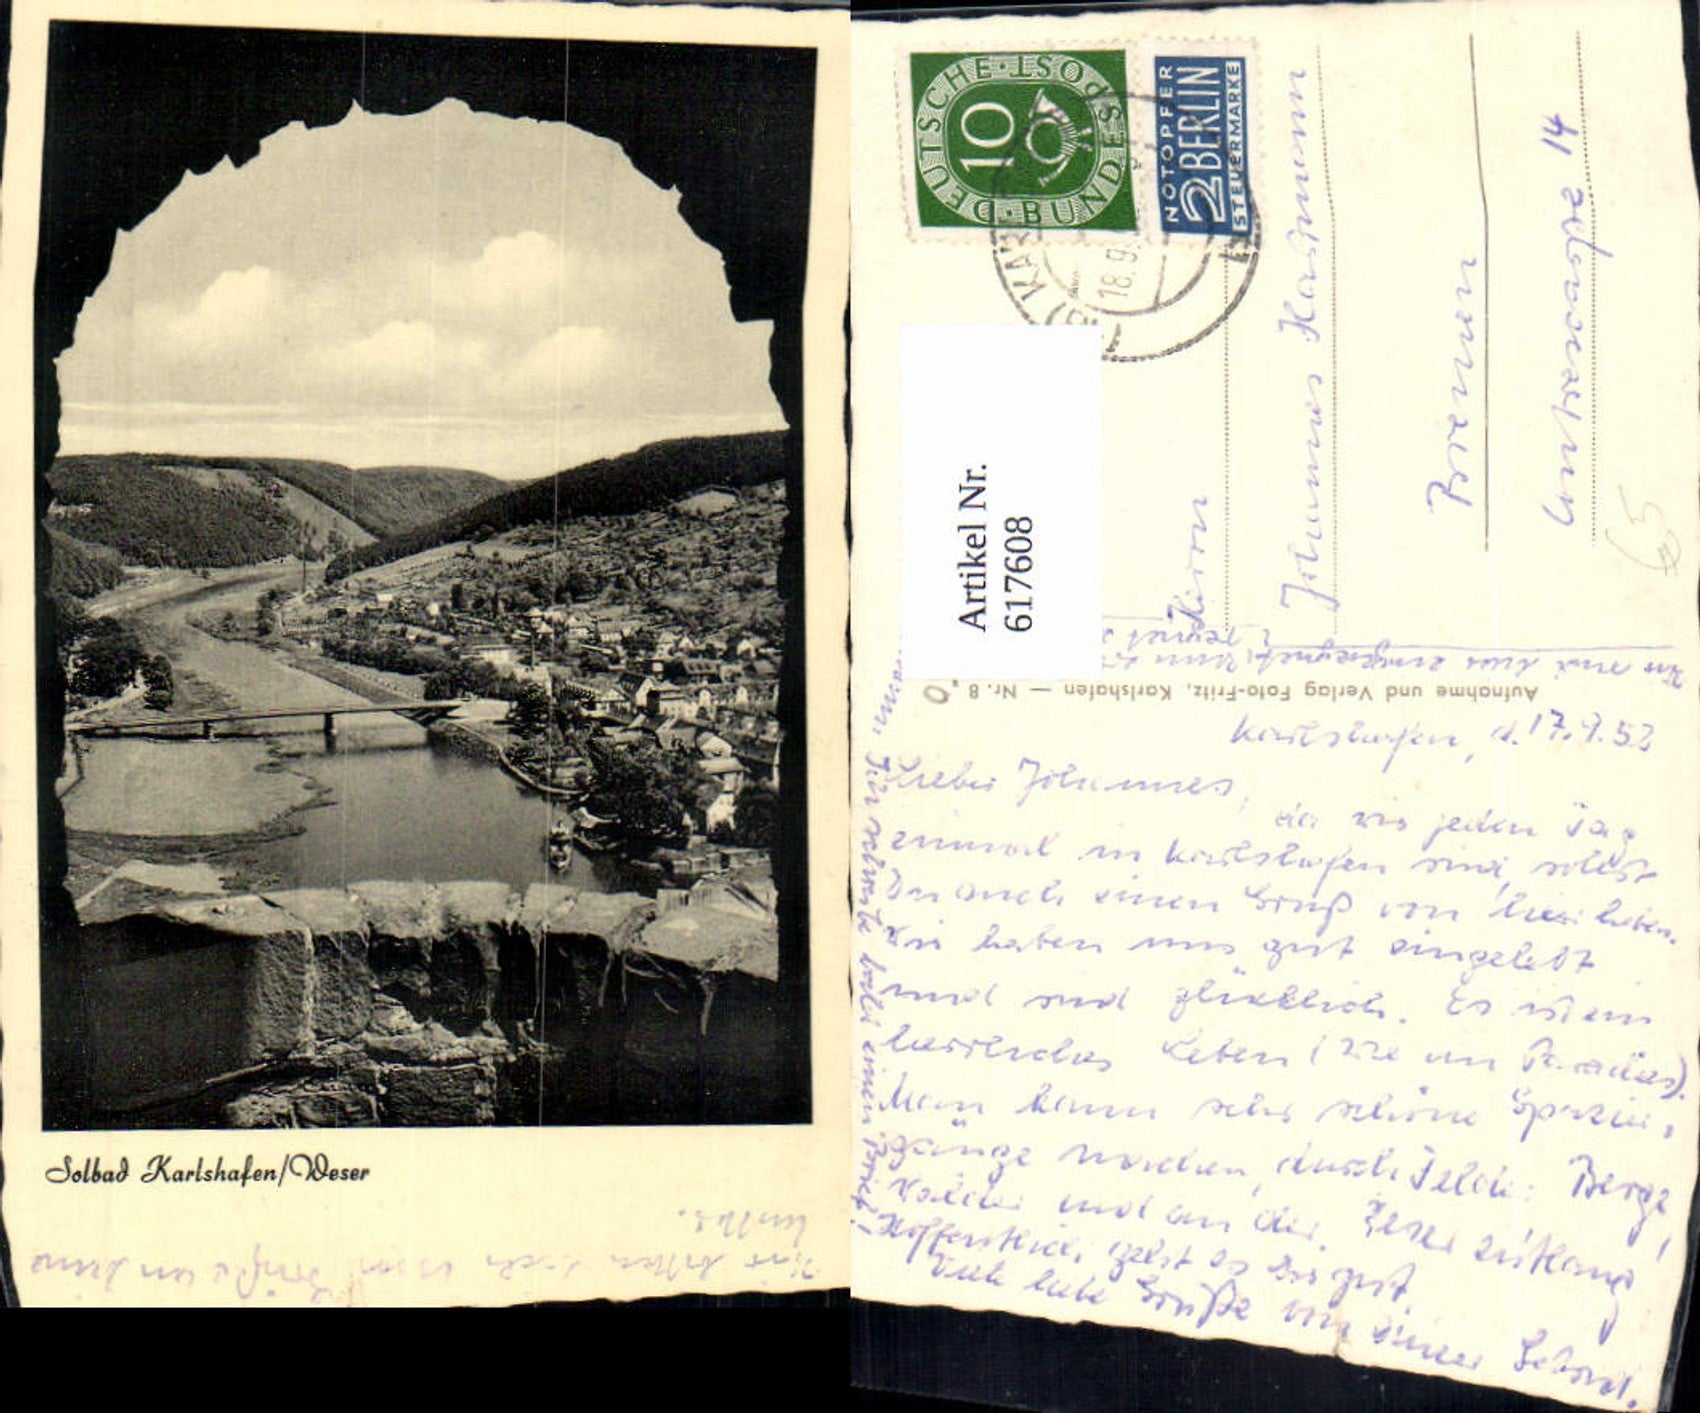 Solbad Karlshafen/Weser
Wir bitten auch um Grüße an Deine
DEUTSCHE · BUNDESPOST
10
NOTOPFER
2 BERLIN
STEUERMARKE
18.9.
Artikel Nr.
617608
Herrn
Johannes
Bremen
14
65
Aufnahme und Verlag Foto-Fritz, Karlshafen — Nr. 8
Karlshafen, d. 17.9.52
Lieber Johannes,
da wir jeden Tag
einmal in Karlshafen sind, sollst
Du auch einen Gruß von hier haben.
Wir haben uns gut eingelebt
und sind glücklich. Es ist ein
herrliches Leben (wie im Paradies).
Man kann sehr schöne Spazier-
gänge machen, durch Felder, Berge,
Wälder und an der Weser entlang.
Hoffentlich geht es Dir gut.
Viele liebe Grüße von Deiner
bald einen Brief!